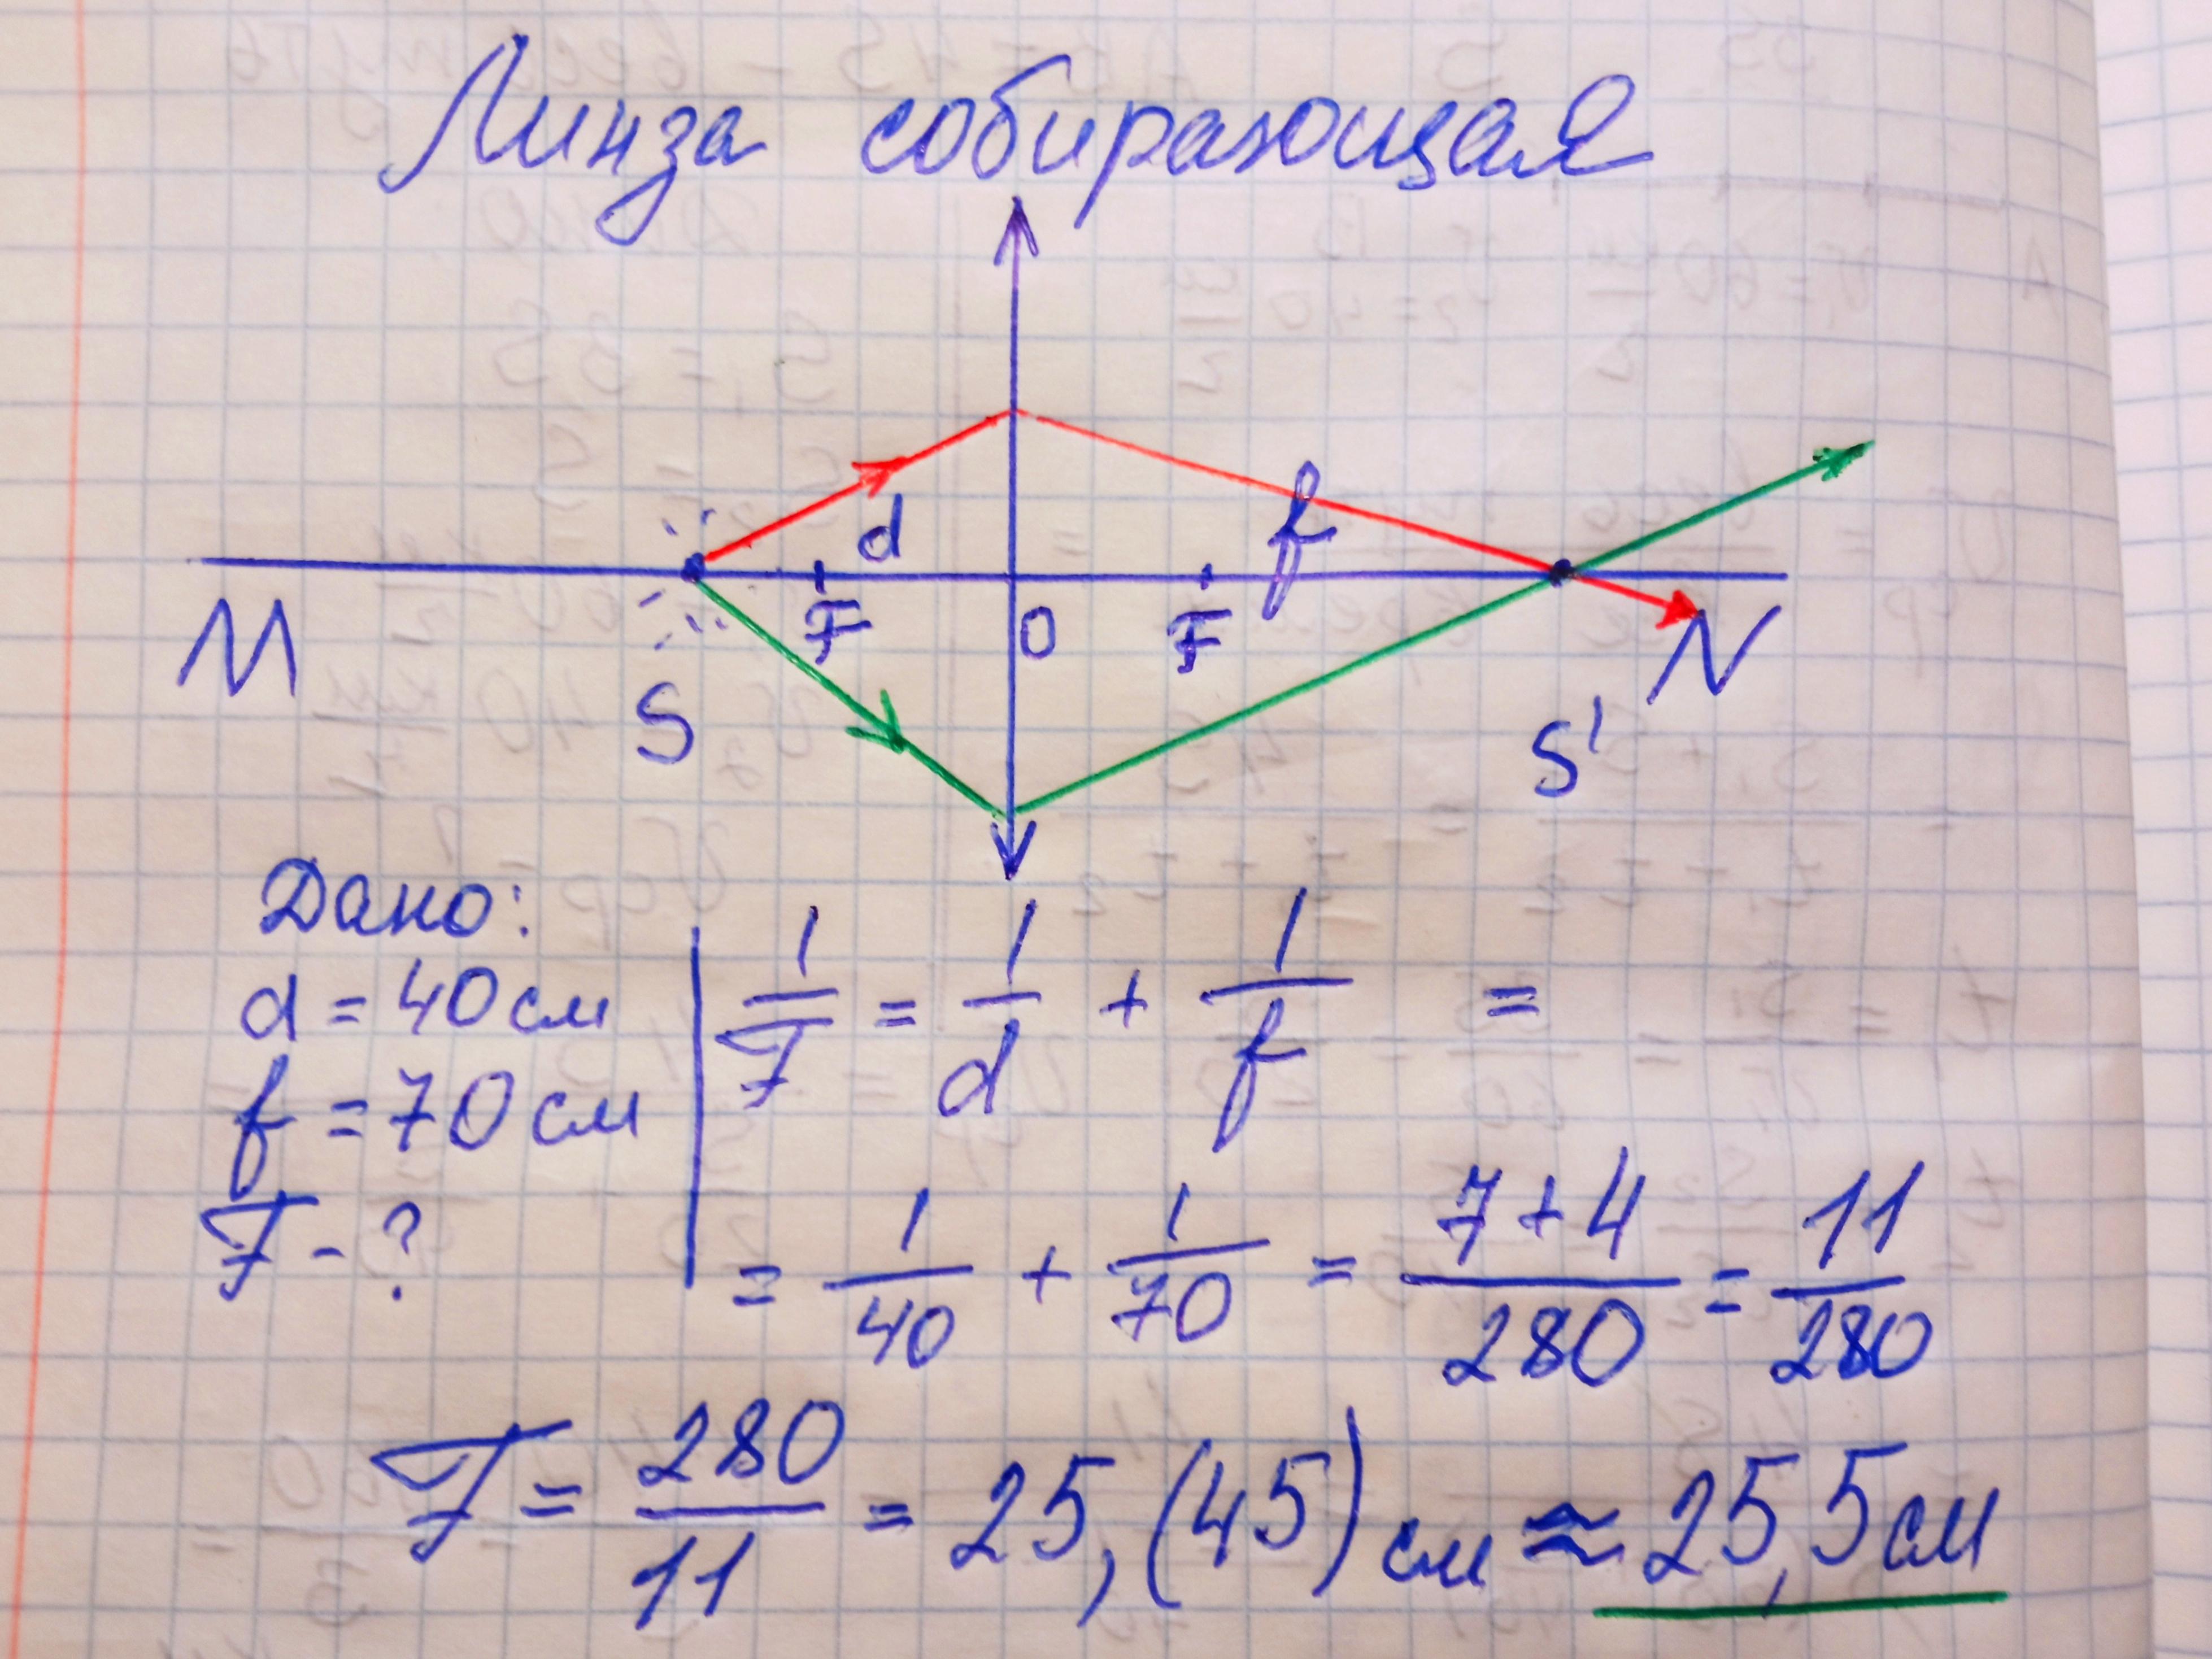 Линза собирающая
d f
M S F O F S' N
Дано:
d = 40 см
f = 70 см
F - ?
1/F = 1/d + 1/f =
= 1/40 + 1/70 = 7+4/280 = 11/280
F = 280/11 = 25,(45) см ≈ 25,5 см